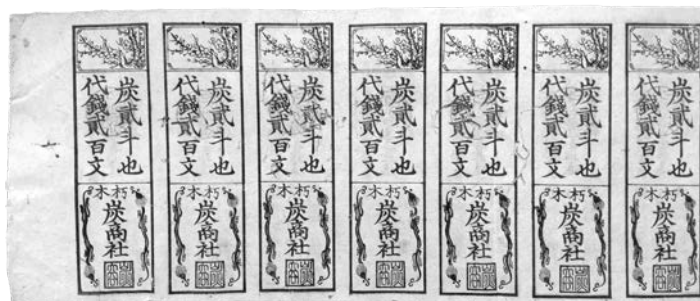 炭貳斗也
代錢貳百文
朽木
炭商社
炭貳斗也
代錢貳百文
朽木
炭商社
炭貳斗也
代錢貳百文
朽木
炭商社
炭貳斗也
代錢貳百文
朽木
炭商社
炭貳斗也
代錢貳百文
朽木
炭商社
炭貳斗也
代錢貳百文
朽木
炭商社
炭貳斗也
代錢貳百文
朽木
炭商社